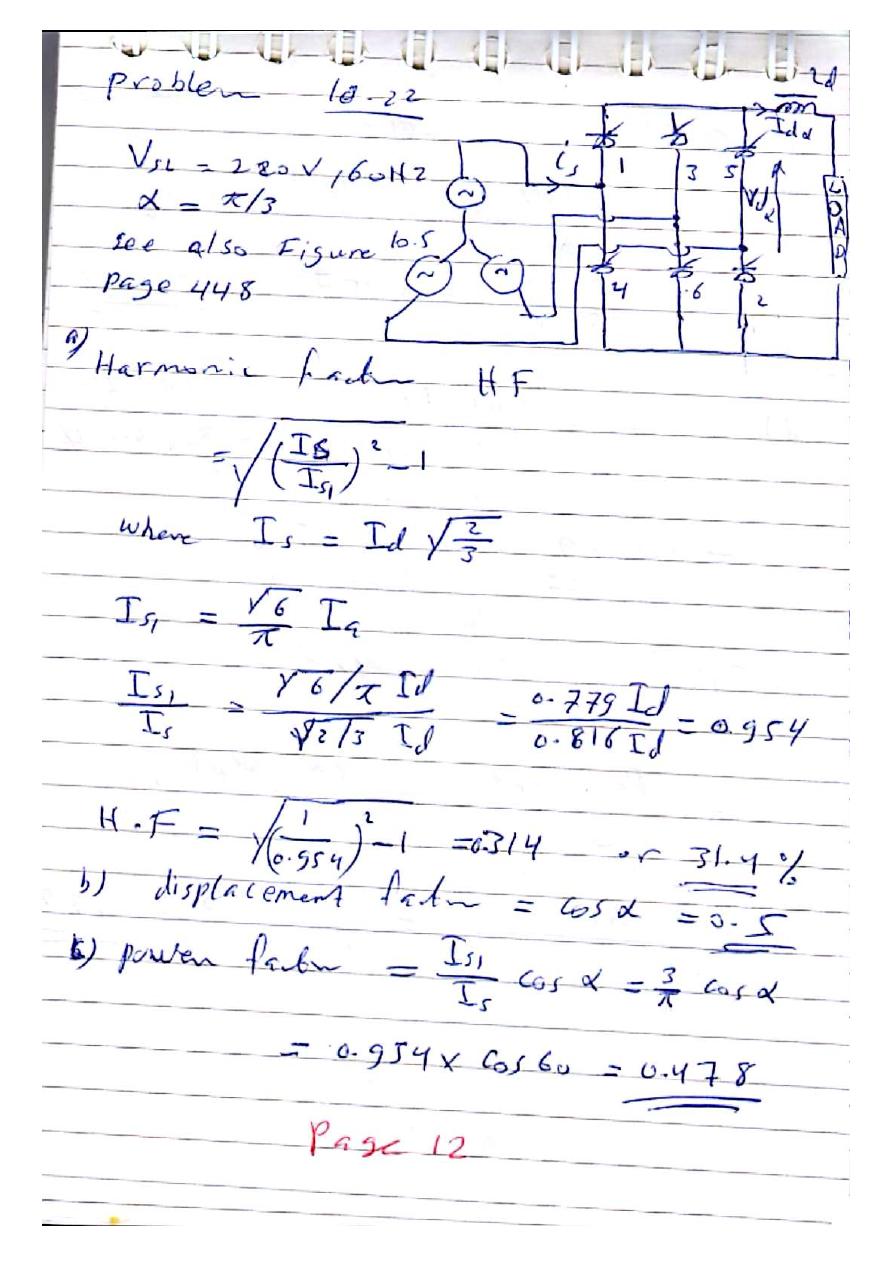 problem 10-22
V_SL = 280 V, 60Hz
α = π/3
see also Figure 10.5
page 448
is 1 3 5 4 6 2
Ld
Idα
Vdα
LOAD
a) Harmonic factor HF
= √((IS/Is1)² - 1)
where Is = Id √(2/3)
Is1 = √6/π Ia
Is1/Is = (√6/π Id)/(√2/3 Id) = 0.779 Id/0.816 Id = 0.954
H.F = √((1/0.954)² - 1) = 0.314 or 31.4 %
b) displacement factor = cos α = 0.5
c) power factor = Is1/Is cos α = 3/π cos α
= 0.954 x Cos 60 = 0.478
Page 12